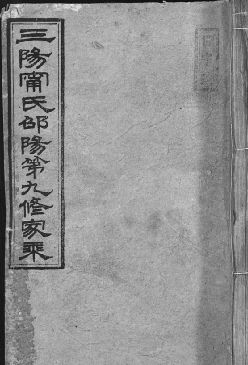 三陽甯氏邵陽第九修家乘